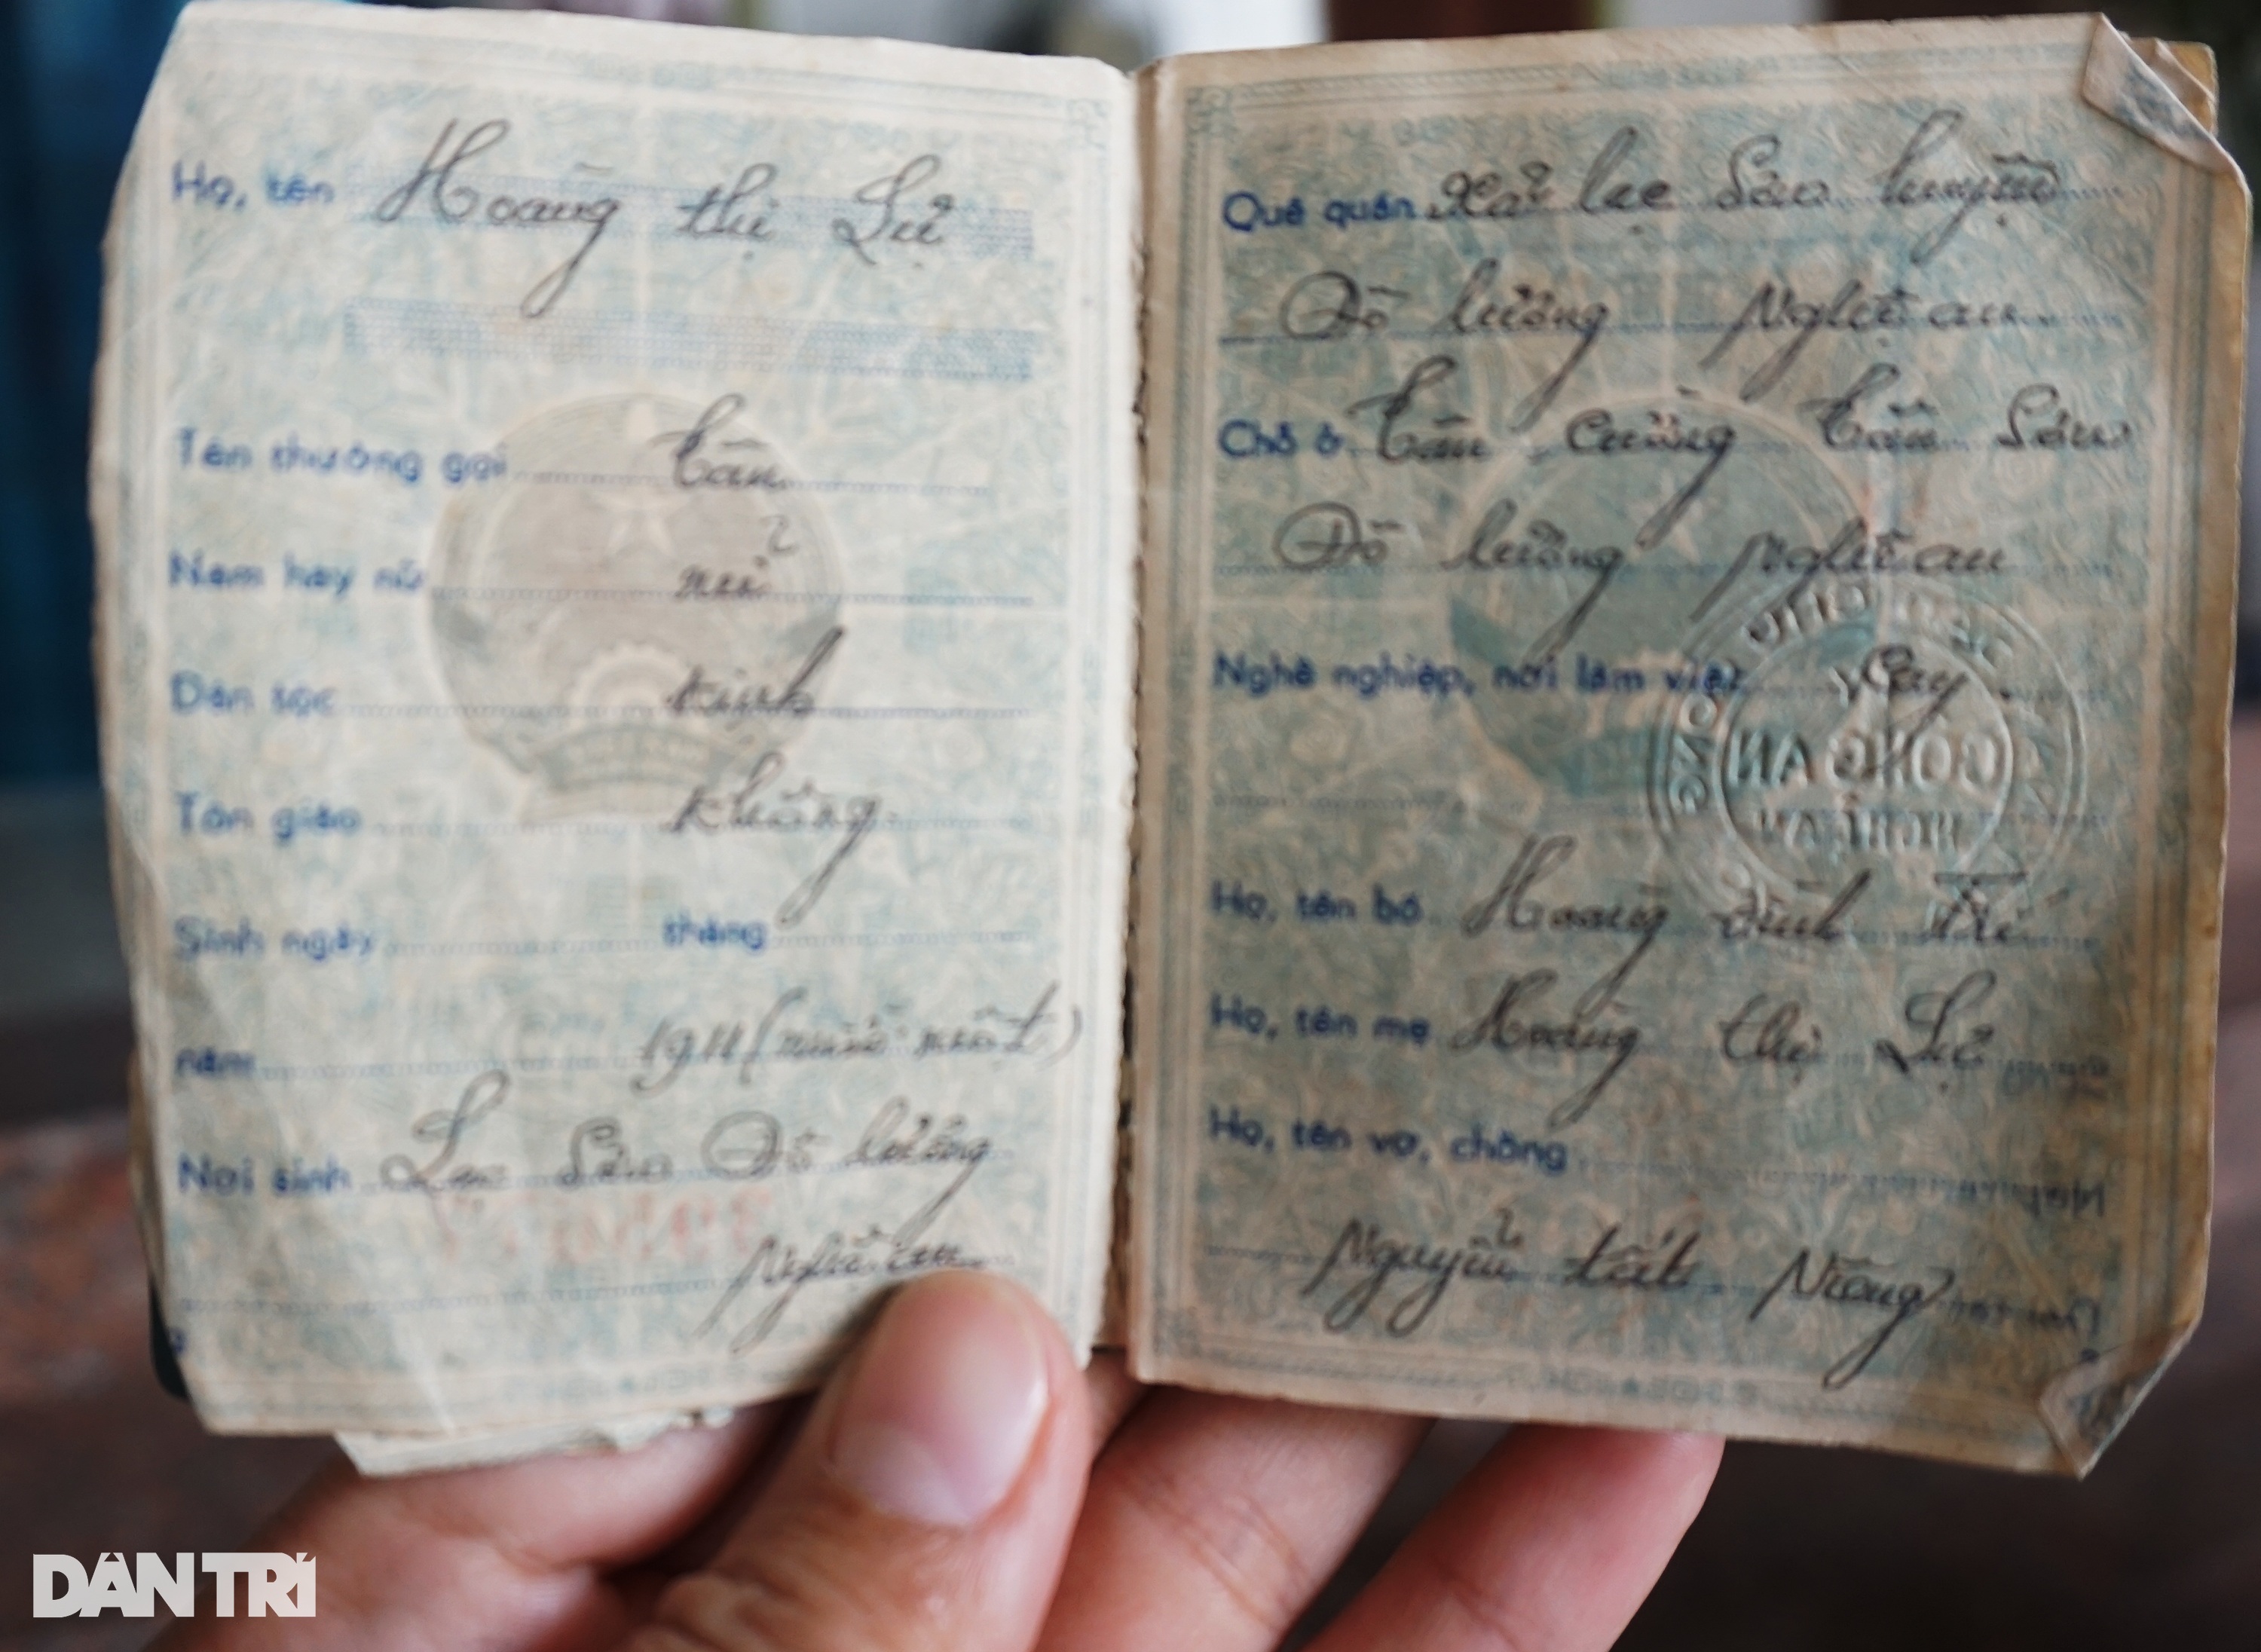 Họ, tên Hoàng thị Sự
Tên thường gọi Tân
Nam hay nữ nữ
Dân tộc kinh
Tôn giáo không
Sinh ngày tháng
năm 1911 (mười một)
Nơi sinh Lạc Sơn Đô lương
Nghệ an
Quê quán Xã lạc Sơn huyện
Đô lương Nghệ an
Chỗ ở Tân cường Tân Sơn
Đô lương Nghệ an
Nghề nghiệp, nơi làm việc Cày
CÔNG AN
Họ, tên bố Hoàng đình
Họ, tên mẹ Hoàng thị Sự
Họ, tên vợ, chồng
Nguyễn tất Năng
DÂN TRÍ